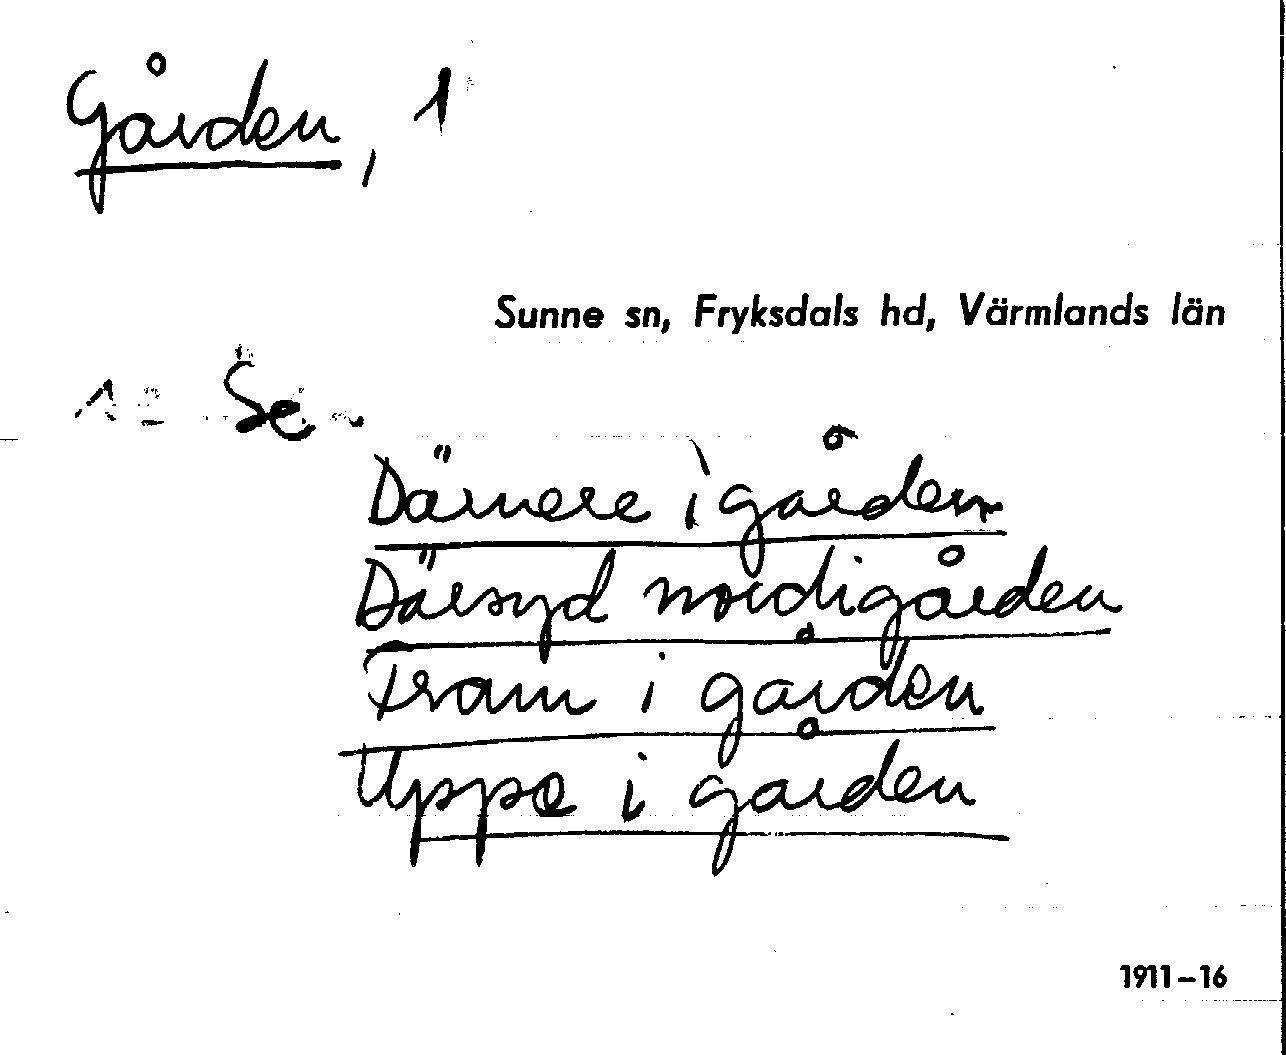 Gården, 1
Sunne sn, Fryksdals hd, Värmlands län
Se
Därnere i gården
Därsyd nordigården
Fram i gården
Uppe i gården
1911–16